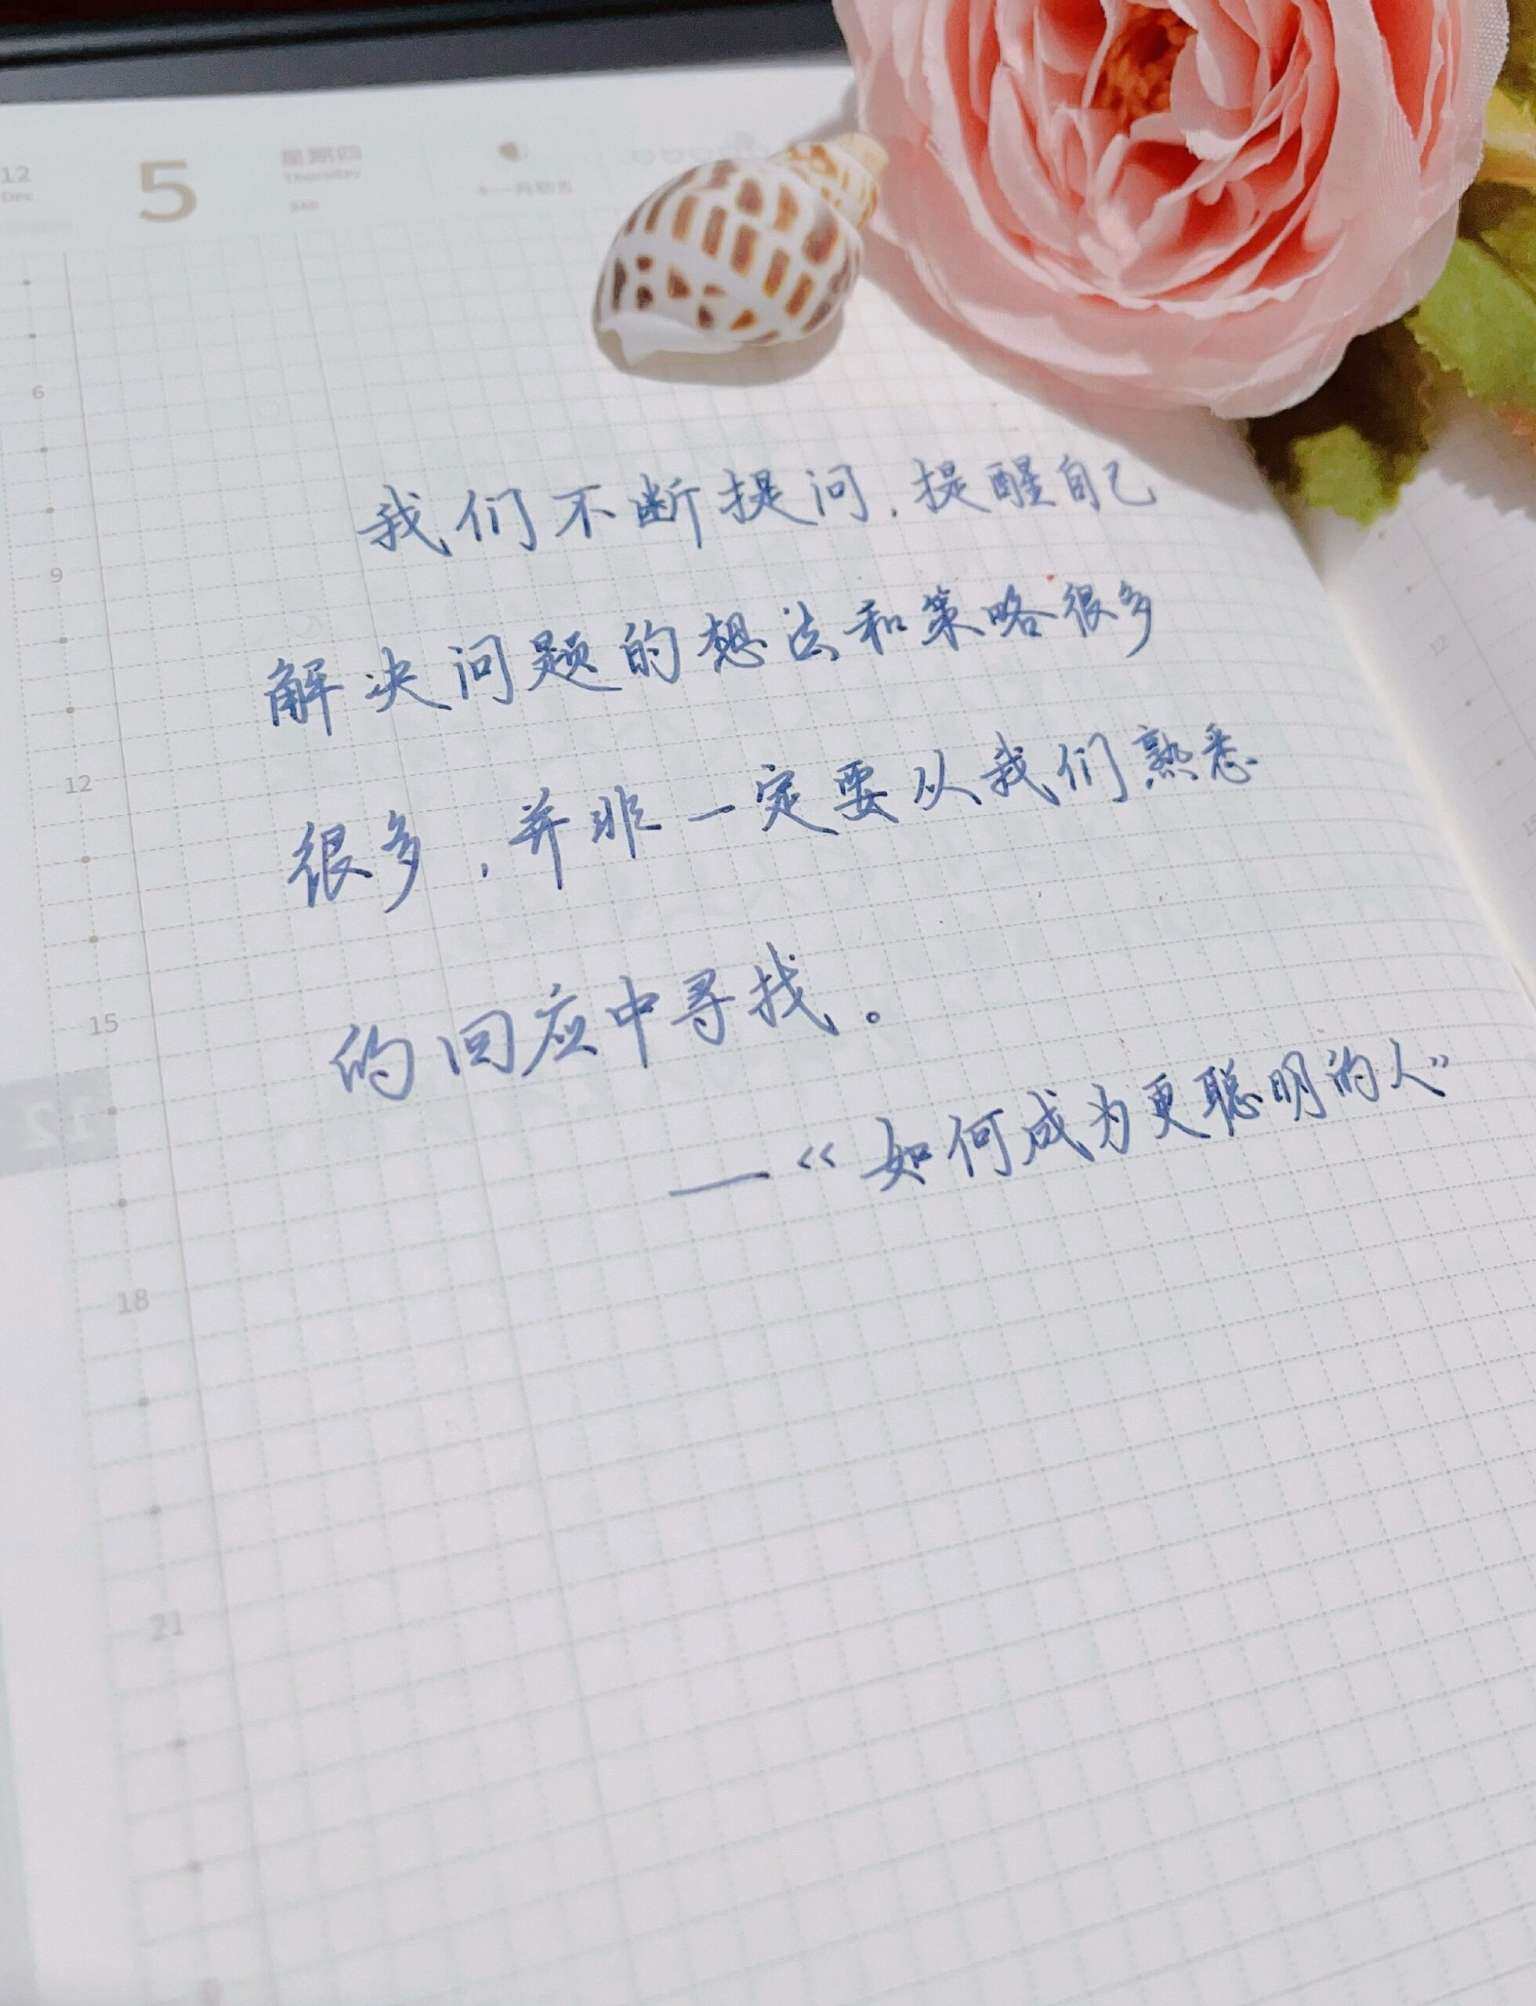 12
Dec
5
Thursday
6
9
12
15
18
21
我们不断提问，提醒自己
解决问题的想法和策略很多
很多，并非一定要从我们熟悉
的回应中寻找。
—《如何成为更聪明的人》
12
12